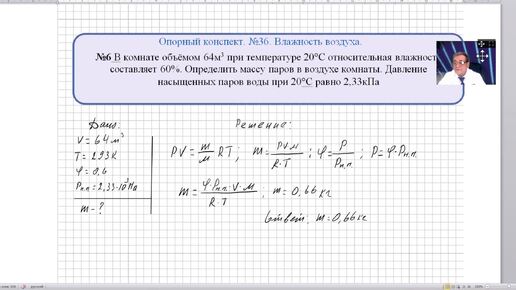 Опорный конспект. №36. Влажность воздуха.
№6 В комнате объёмом 64м³ при температуре 20°С относительная влажность
составляет 60%. Определить массу паров в воздухе комнаты. Давление
насыщенных паров воды при 20°С равно 2,33кПа
Дано:
V = 64 м³
T = 293К
φ = 0,6
Pн.п. = 2,33·10³Па
m - ?
Решение:
PV = m/м RT; m = PVм/R·T; φ = P/Pн.п.; P = φ·Pн.п.
m = φ·Pн.п.·V·м/R·T; m = 0,66 кг
Ответ: m = 0,66 кг